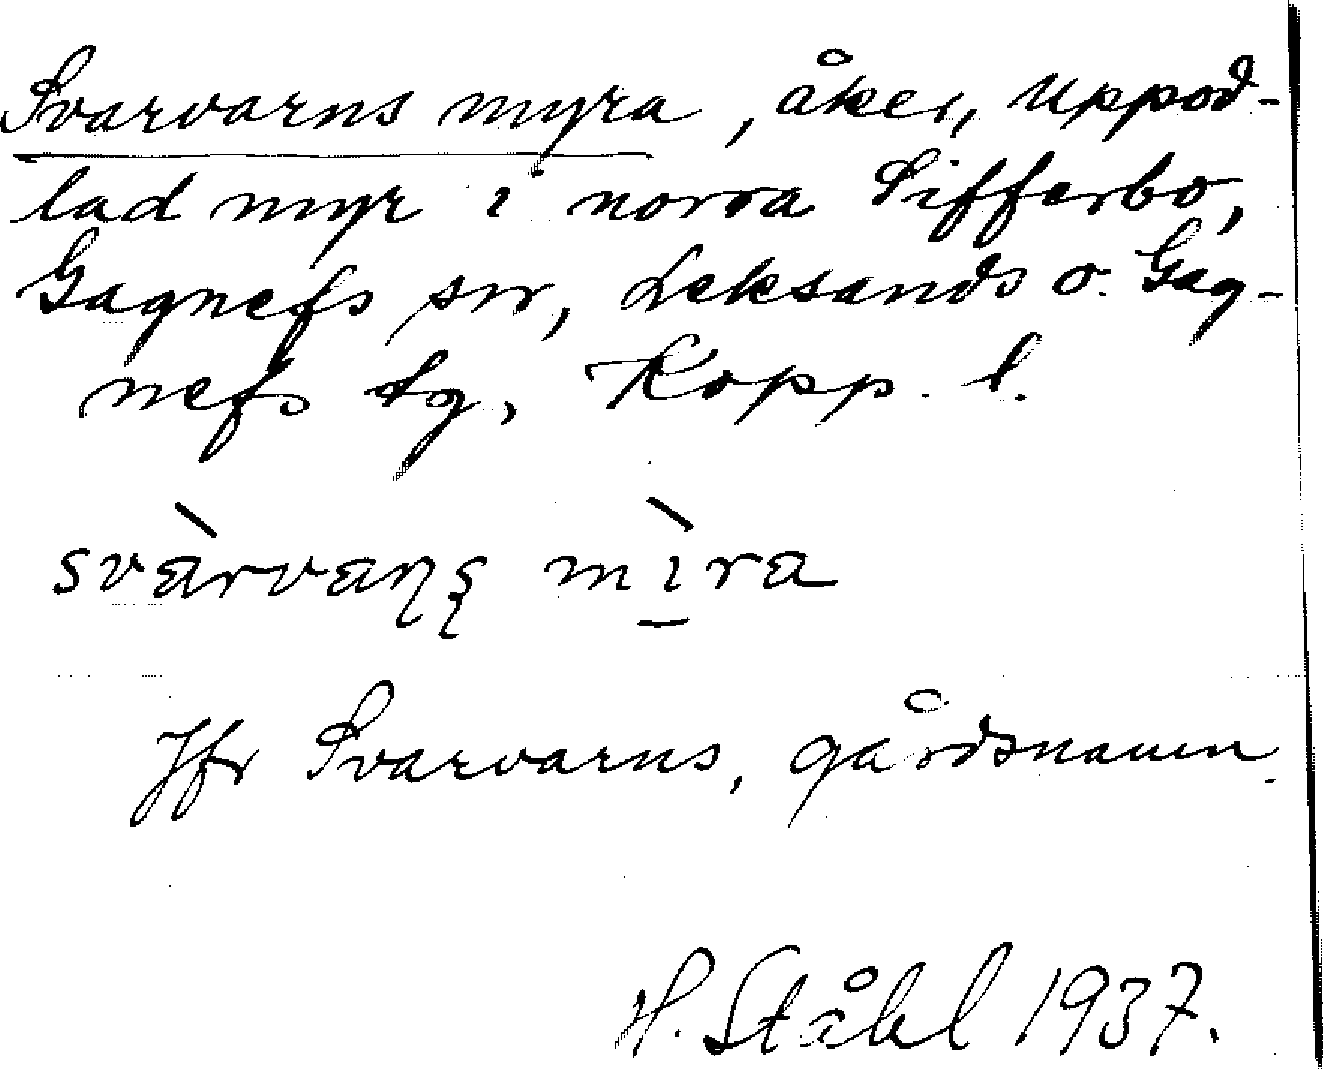 Svarvarns myra, åker, uppod-
lad myr i norra Sifferbo,
Gagnefs sn, Leksands o. Gag-
nefs tg, Kopp. l.
svàrvaṇṣ mì̱ra
Jfr Svarvarns, gårdsnamn.
H. Ståhl 1937.